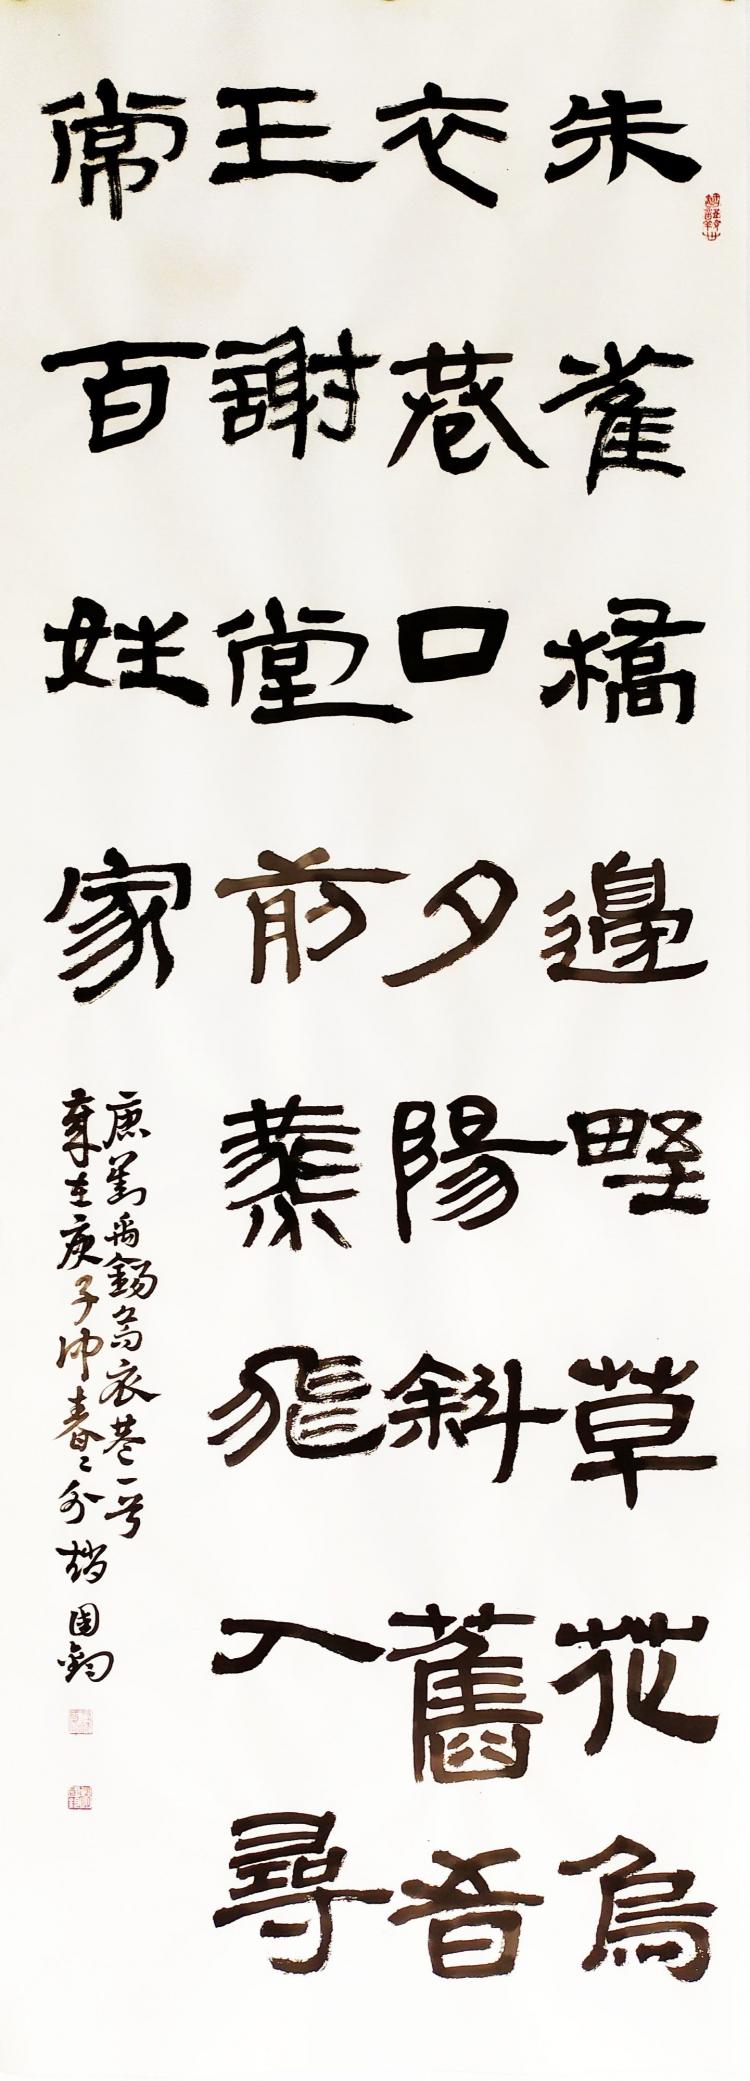 朱雀橋邊野草花烏
衣巷口夕陽斜舊旹
王謝堂前燕飛入尋
常百姓家
唐劉禹錫烏衣巷一首
歲在庚子仲春〻分趙國鈞